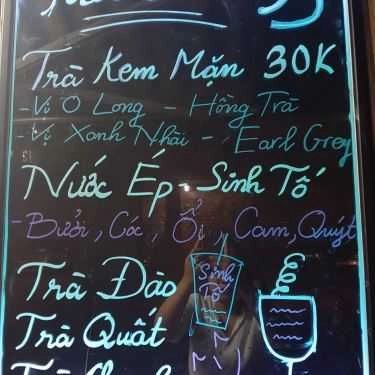 Trà Kem Mặn 30K
- Vị Ô Long - Hồng Trà
- Vị Xanh Nhài - Earl Grey
Nước Ép - Sinh Tố
- Bưởi, Cóc, Ổi, Cam, Quýt
Trà Đào
Sinh
Tố
Trà Quất